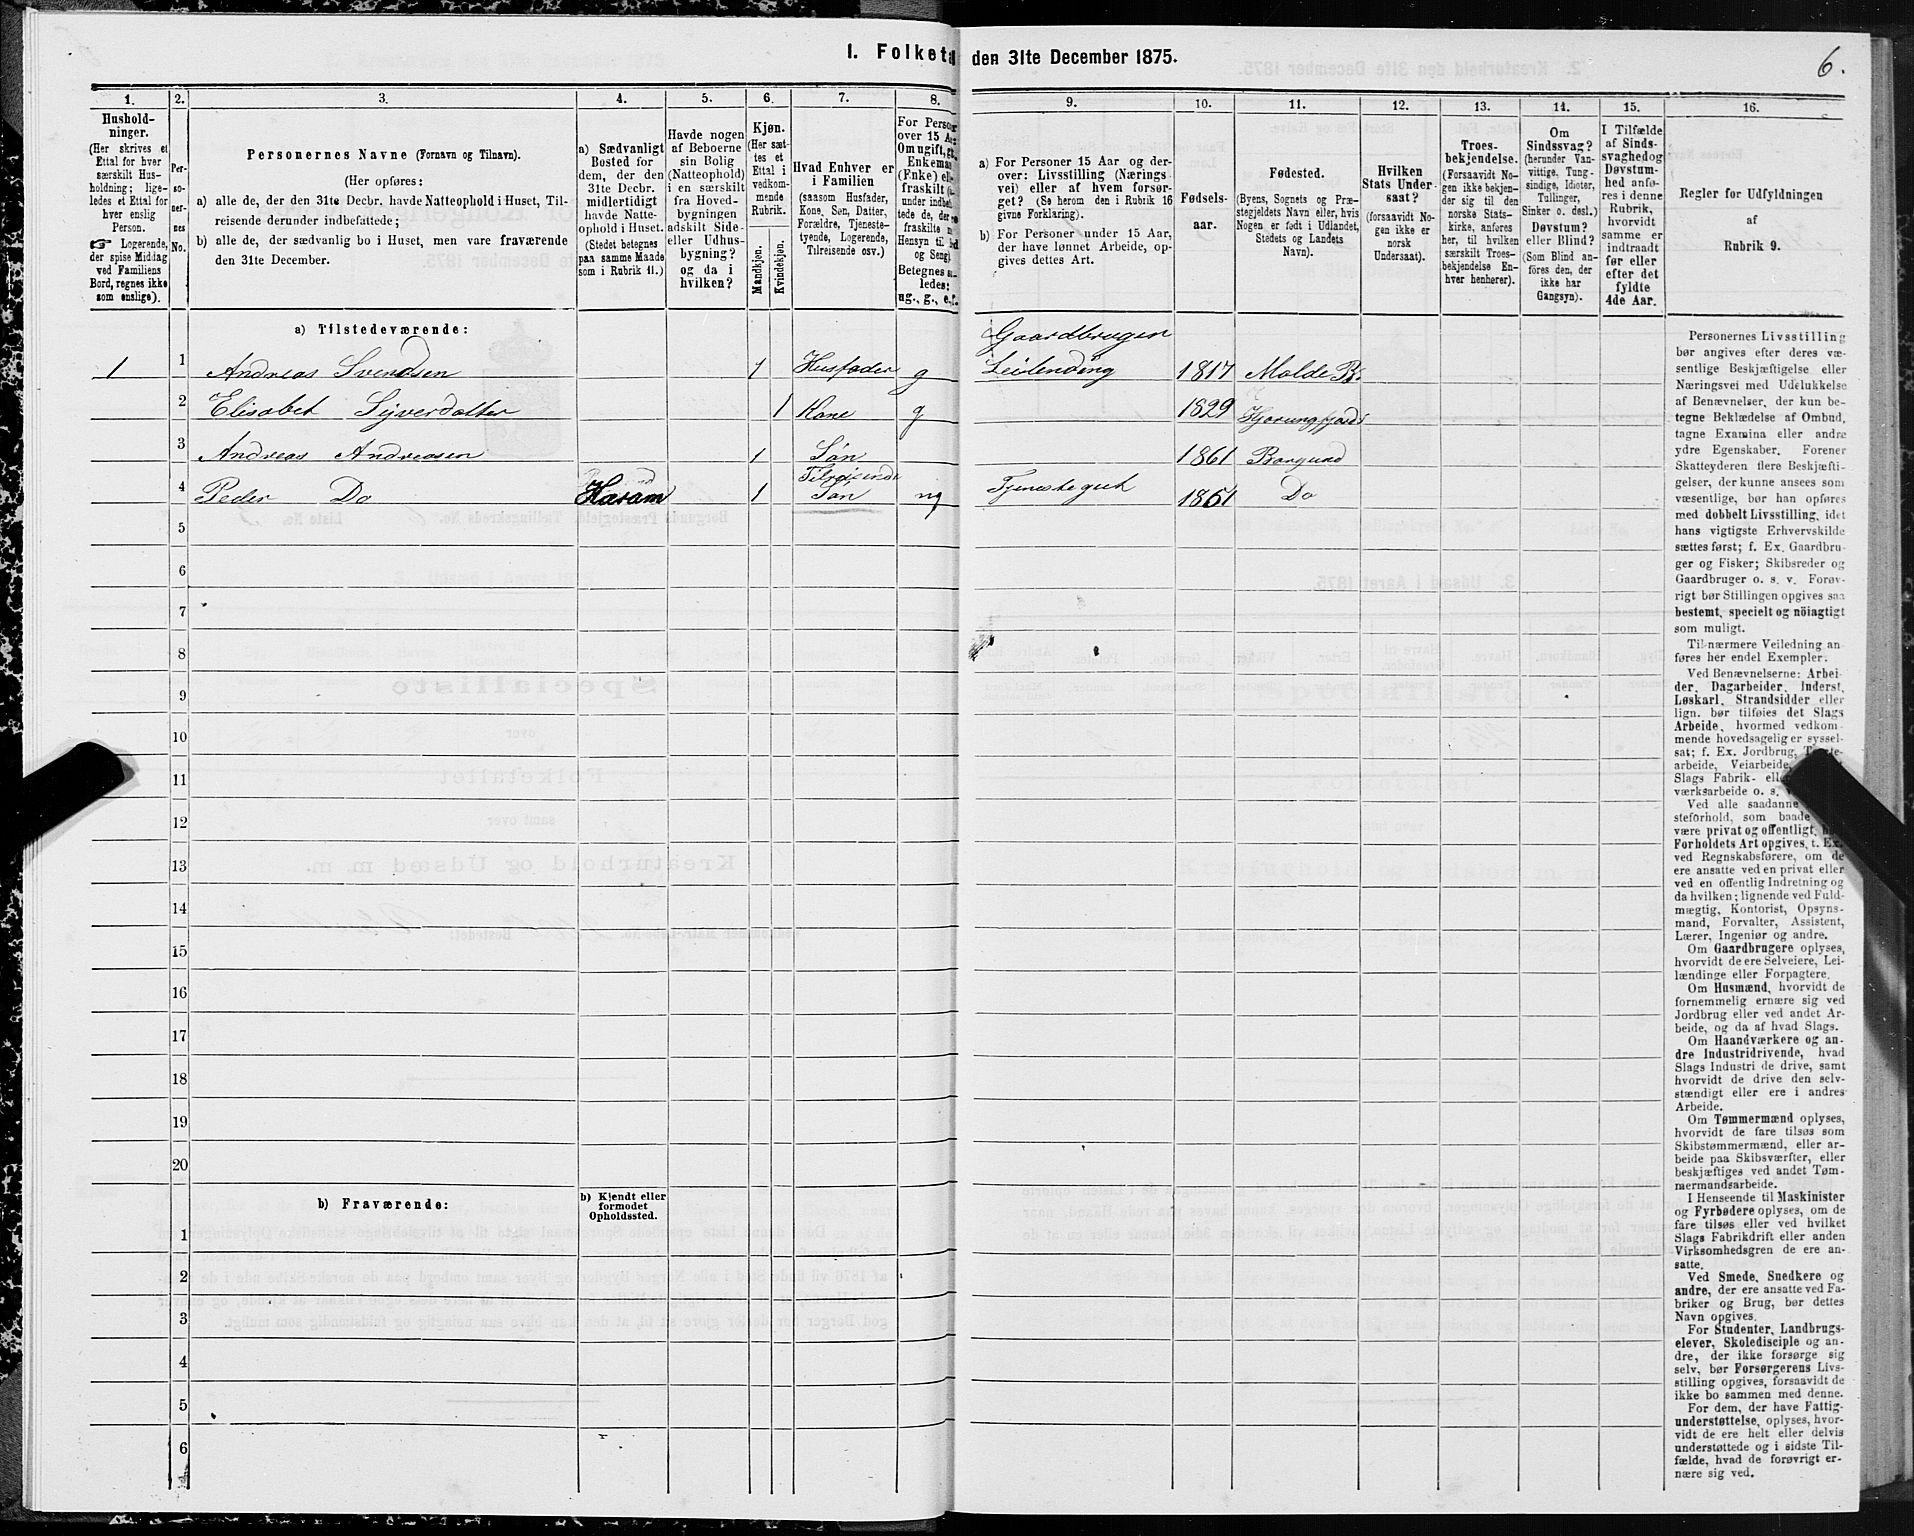 I. Folketal den 31te December 1875.
6.
1. 2. 3. 4. 5. 6. 7. 8. 9. 10. 11. 12. 13. 14. 15. 16.
Hushold-
ninger.
(Her skrives et
Ettal for hver
særskilt Hus-
holdning; lige-
ledes et Ettal for
hver enslig
Person.
☞ Logerende,
der spise Middag
ved Familiens
Bord, regnes ikke
som enslige).
Per-
so-
ner-
nes
No.
Personernes Navne (Fornavn og Tilnavn).
(Her opføres:
a) alle de, der den 31te Decbr. havde Natteophold i Huset, Til-
reisende derunder indbefattede;
b) alle de, der sædvanlig bo i Huset, men vare fraværende
den 31te December.
a) Sædvanligt
Bosted for
dem, der den
31te Decbr.
midlertidigt
havde Natte-
ophold i Huset.
(Stedet betegnes
paa samme Maade
som i Rubrik 11.)
Havde nogen
af Beboerne
sin Bolig
(Natteophold)
i en særskilt
fra Hoved-
bygningen
adskilt Side-
eller Udhus-
bygning?
og da i
hvilken?
Kjøn.
(Her sæt-
tes et
Ettal i
vedkom-
mende
Rubrik.
Mandkjøn.
Kvindekjøn.
Hvad Enhver er
i Familien
(saasom Husfader,
Kone, Søn, Datter,
Forældre, Tjeneste-
tyende, Logerende,
Tilreisende osv.)
For Person
over 15 Aa
Om ugift, gt.
Enkema
(Enke) el
fraskilt
under indbe
tede de, der
fraskilte
Hensyn til
og Seng).
Betegnes
ledes:
ug., g., e., f.
a) For Personer 15 Aar og der-
over: Livsstilling (Nærings-
vei) eller af hvem forsør-
get? (Se herom den i Rubrik 16
givne Forklaring).
b) For Personer under 15 Aar,
der have lønnet Arbeide, op-
gives dettes Art.
Fødsels-
aar.
Fødested.
(Byens, Sognets og Præ-
stegjeldets Navn eller, hvis
Nogen er født i Udlandet,
Stedets og Landets
Navn).
Hvilken
Stats Under-
saat?
(forsaavidt No-
gen ikke er
norsk
Undersaat).
Troes-
bekjendelse.
(Forsaavidt No-
gen ikke bekjen-
der sig til den
norske Stats-
kirke, anføres
her, til hvilken
særskilt Troes-
bekjendelse En-
hver henhører).
Om
Sindssvag?
(herunder Van-
vittige, Tung-
sindige, Idioter,
Tullinger,
Sinker o. desl.)
Døvstum?
eller Blind?
(Som Blind an-
føres den, der
ikke har
Gangsyn).
I Tilfælde
af Sinds-
svaghed og
Døvstum-
hed anfø-
res i denne
Rubrik,
hvorvidt
samme er
indtraadt
før eller
efter det
fyldte
4de Aar.
Regler for Udfyldningen
af
Rubrik 9.
a) Tilstedeværende:
Gaardbruger
1 1 Andreas Svendsen 1 Husfader g Leilending 1817 Molde B.
2 Elisabet Sjverdatter 1 Kone g 1829 Hjorungfjord
3 Andreas Andreasen 1 Søn 1861 Borgund
Tilreisende
4 Peder Do Haram 1 Søn ug Tjenestegut 1851 Do
5
6
7
8
9
10
11
12
13
14
15
16
17
18
19
20
b) Fraværende:
b) Kjendt eller
formodet
Opholdssted.
1
2
3
4
5
6
Personernes Livsstilling
bør angives efter deres væ-
sentlige Beskjæftigelse eller
Næringsvei med Udelukkelse
af Benævnelser, der kun be-
tegne Beklædelse af Ombud,
tagne Examina eller andre
ydre Egenskaber. Forener
Skatteyderen flere Beskjæfti-
gelser, der kunne ansees som
væsentlige, bør han opføres
med dobbelt Livsstilling, idet
hans vigtigste Erhvervskilde
sættes først; f. Ex. Gaardbru-
ger og Fisker; Skibsreder og
Gaardbruger o. s. v. Forøv-
rigt bør Stillingen opgives saa
bestemt, specielt og nöiagtigt
som muligt.
Til nærmere Veiledning an-
føres her endel Exempler:
Ved Benævnelserne: Arbei-
der, Dagarbeider, Inderst,
Løskarl, Strandsidder eller
lign. bør tilføies det Slags
Arbeide, hvormed vedkom-
mende hovedsagelig er syssel-
sat; f. Ex. Jordbrug,
arbeide, Veiarbeide,
Slags Fabrik-
værksarbeide o. s. v.
Ved alle saadanne
steforhold, som baade
være privat og offentligt,
Forholdets Art opgives, t. Ex.
ved Regnskabsførere, om de
ere ansatte ved en privat eller
ved en offentlig Indretning og
da hvilken; lignende ved Fuld-
mægtig, Kontorist, Opsyns-
mand, Forvalter, Assistent,
Lærer, Ingeniør og andre.
Om Gaardbrugere oplyses,
hvorvidt de ere Selveiere, Lei-
lændinge eller Forpagtere.
Om Husmænd, hvorvidt de
fornemmelig ernære sig ved
Jordbrug eller ved andet Ar-
beide, og da af hvad Slags.
Om Haandværkere og an-
dre Industridrivende, hvad
Slags Industri de drive, samt
hvorvidt de drive den selv-
stændigt eller ere i andres
Arbeide.
Om Tømmermænd oplyses,
hvorvidt de fare tilsøs som
Skibstømmermænd, eller ar-
beide paa Skibsværfter, eller
beskjæftiges ved andet Tøm-
mermandsarbeide.
I Henseende til Maskinister
og Fyrbødere oplyses, om de
fare tilsøs eller ved hvilket
Slags Fabrikdrift eller anden
Virksomhedsgren de ere an-
satte.
Ved Smede, Snedkere og
andre, der ere ansatte ved Fa-
briker og Brug, bør dettes
Navn opgives.
For Studenter, Landbrugs-
elever, Skoledisciple og an-
dre, der ikke forsørge sig
selv, bør Forsørgerens Livs-
stilling opgives, forsaavidt de
ikke bo sammen med denne.
For dem, der have Fattig-
understøttelse, oplyses, hvor-
vidt de ere helt eller delvis
understøttede og i sidste Til-
fælde, hvad de forøvrigt er-
nære sig ved.